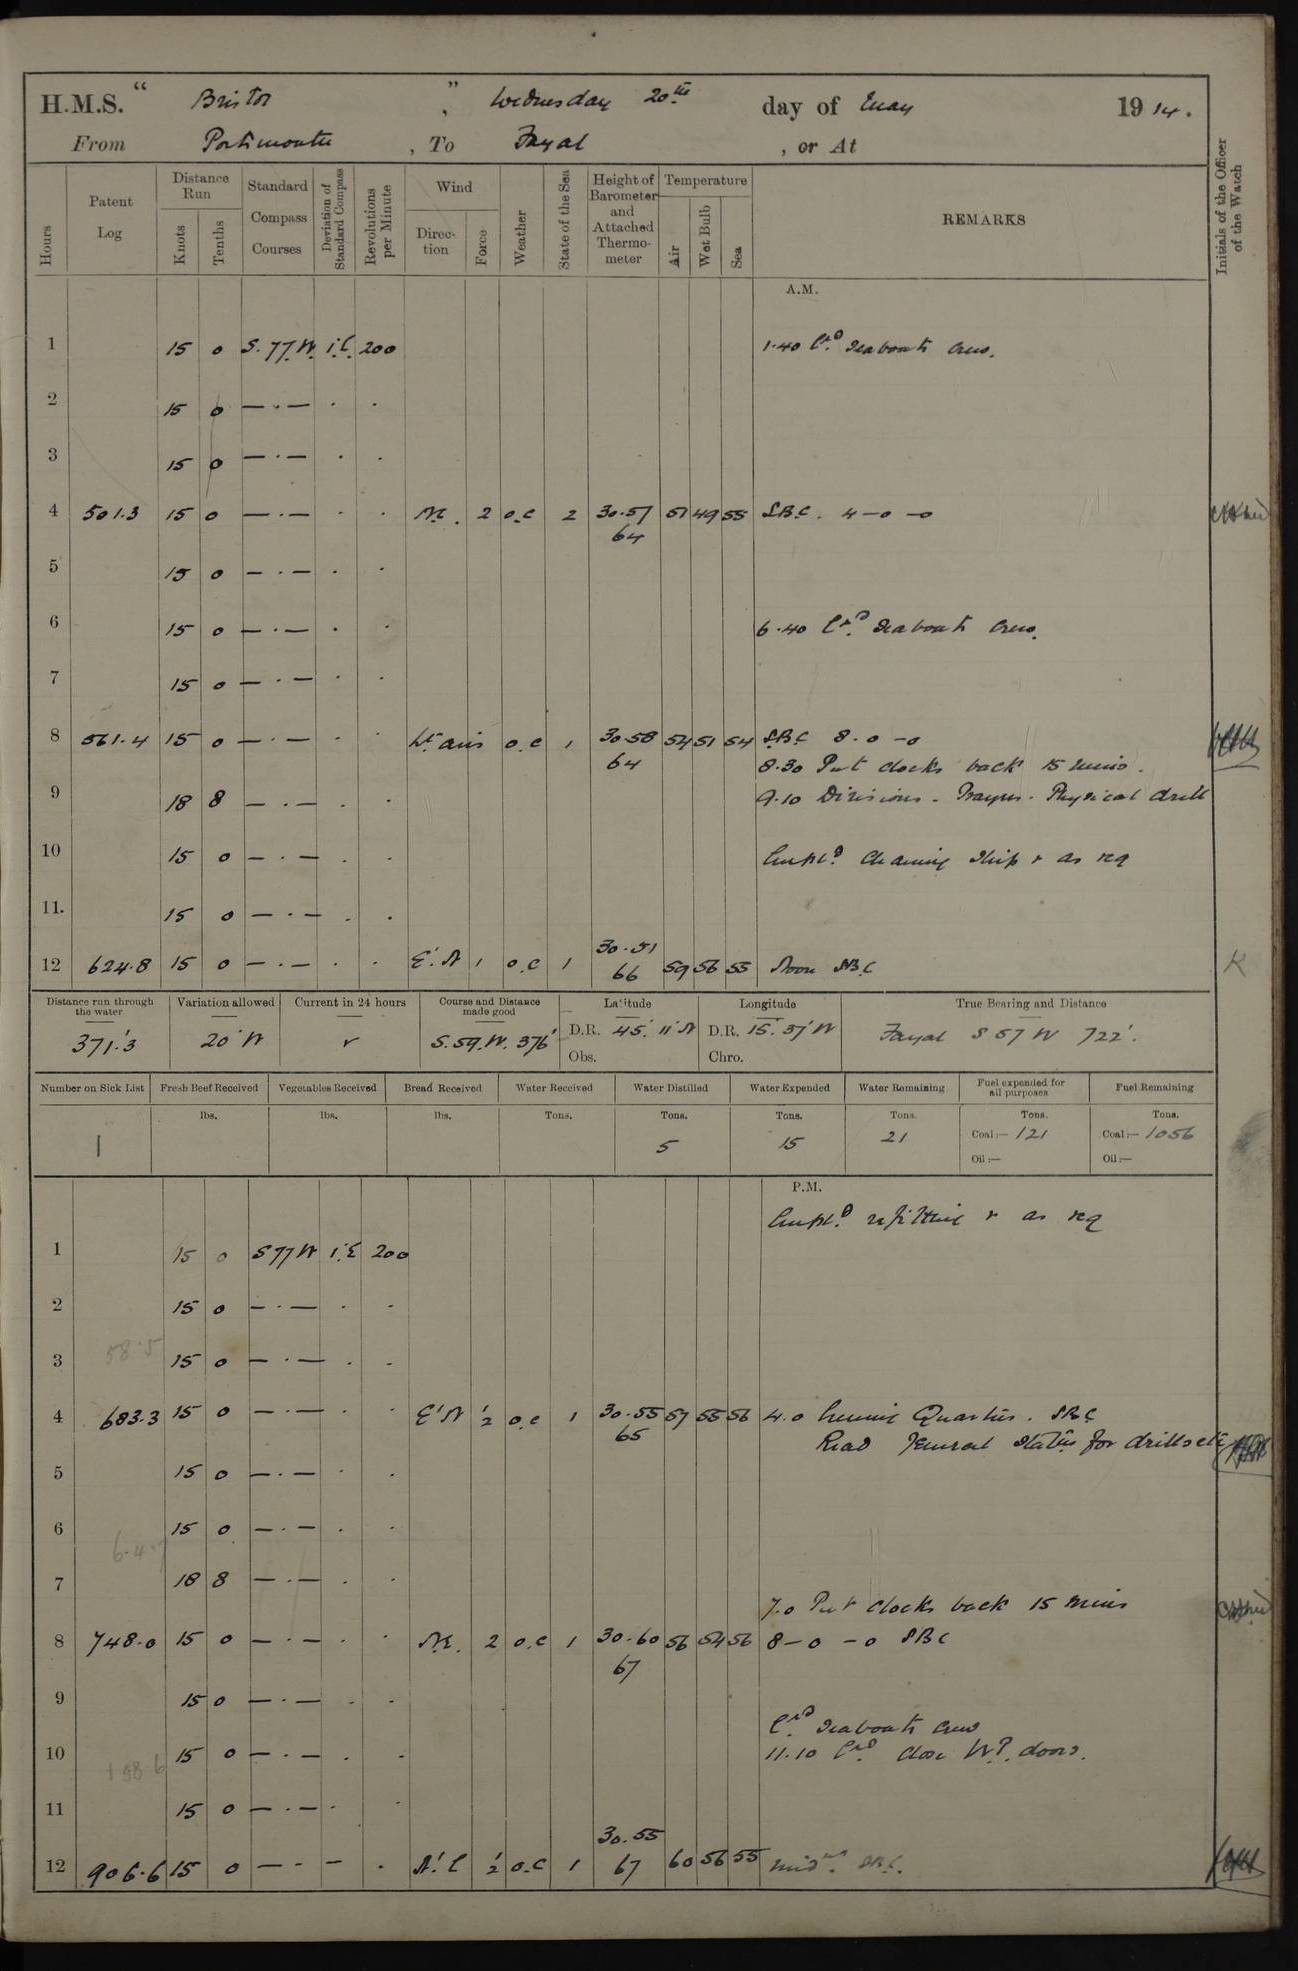 H.M.S. " Bristol " Wednesday 20th day of May 1914.
From Portsmouth, To Fayal, or At
Hours Patent Log Distance Run Knots Tenths Standard Compass Courses Deviation of Standard Compass Revolutions per Minute Wind Direction Force Weather State of the Sea Height of Barometer and Attached Thermometer Temperature Air Wet Bulb Sea REMARKS Initials of the Officer of the Watch
A.M.
1 15 0 S.77.W. 1.E. 200 1.40 Exd Seaboats Crew.
2 15 0 — · — · ·
3 15 0 — · — · ·
4 501.3 15 0 — · — · · NE. 2 o.c 2 30.57 51 49 55 S.B.C. 4 — 0 — 0
64
5 15 0 — · — · ·
6 15 0 — · — · · 6.40 Exd Seaboats Crew.
7 15 0 — · — · ·
8 561.4 15 0 — · — · · Lt airs o.c 1 30.58 54 51 54 S.B.C 8 - 0 - 0
64 8.30 Put clocks back 15 mins.
9 18 8 — · — · · 9.10 Divisions - Prayers - Physical drill
10 15 0 — · — · · Empld Cleaning Ship & as req
11. 15 0 — · — · ·
12 624.8 15 0 — · — · · E'.N 1 o.c 1 30.51 59 56 55 Noon SBC
66
Distance run through the water Variation allowed Current in 24 hours Course and Distance made good Latitude Longitude True Bearing and Distance
371.3 20° W S.59.W. 376' D.R. 45° 11' N D.R. 15° 37' W Fayal S 57 W 722'.
Obs. Chro.
Number on Sick List Fresh Beef Received Vegetables Received Bread Received Water Received Water Distilled Water Expended Water Remaining Fuel expended for all purposes Fuel Remaining
lbs. lbs. lbs. Tons. Tons. Tons. Tons. Tons. Tons.
1 5 15 21 Coal:— 121 Coal:— 1056
Oil:— Oil:—
P.M.
Empld refitting & as req
1 15 0 S77W 1.E 200
2 15 0 — · — · ·
58.5
3 15 0 — · — · ·
4 683.3 15 0 — · — · · E'N 1/2 o.c 1 30.55 57 55 56 4.0 Evening Quarters. SBC
65 Read General Statn for drills etc
5 15 0 — · — · ·
6 15 0 — · — · ·
7 18 8 — · — · ·
7.0 Put clocks back 15 mins
8 748.0 15 0 — · — · · NE. 2 o.c 1 30.60 56 54 56 8 — 0 — 0 SBC
67
9 15 0 — · — · ·
Exd Seaboats Crew
10 15 0 — · — · · 11.10 Exd Close W.T. doors.
11 15 0 — · — · ·
12 906.6 15 0 — · — · N'.E 1/2 o.c 1 30.55 60 56 55 Midnt SBC.
67